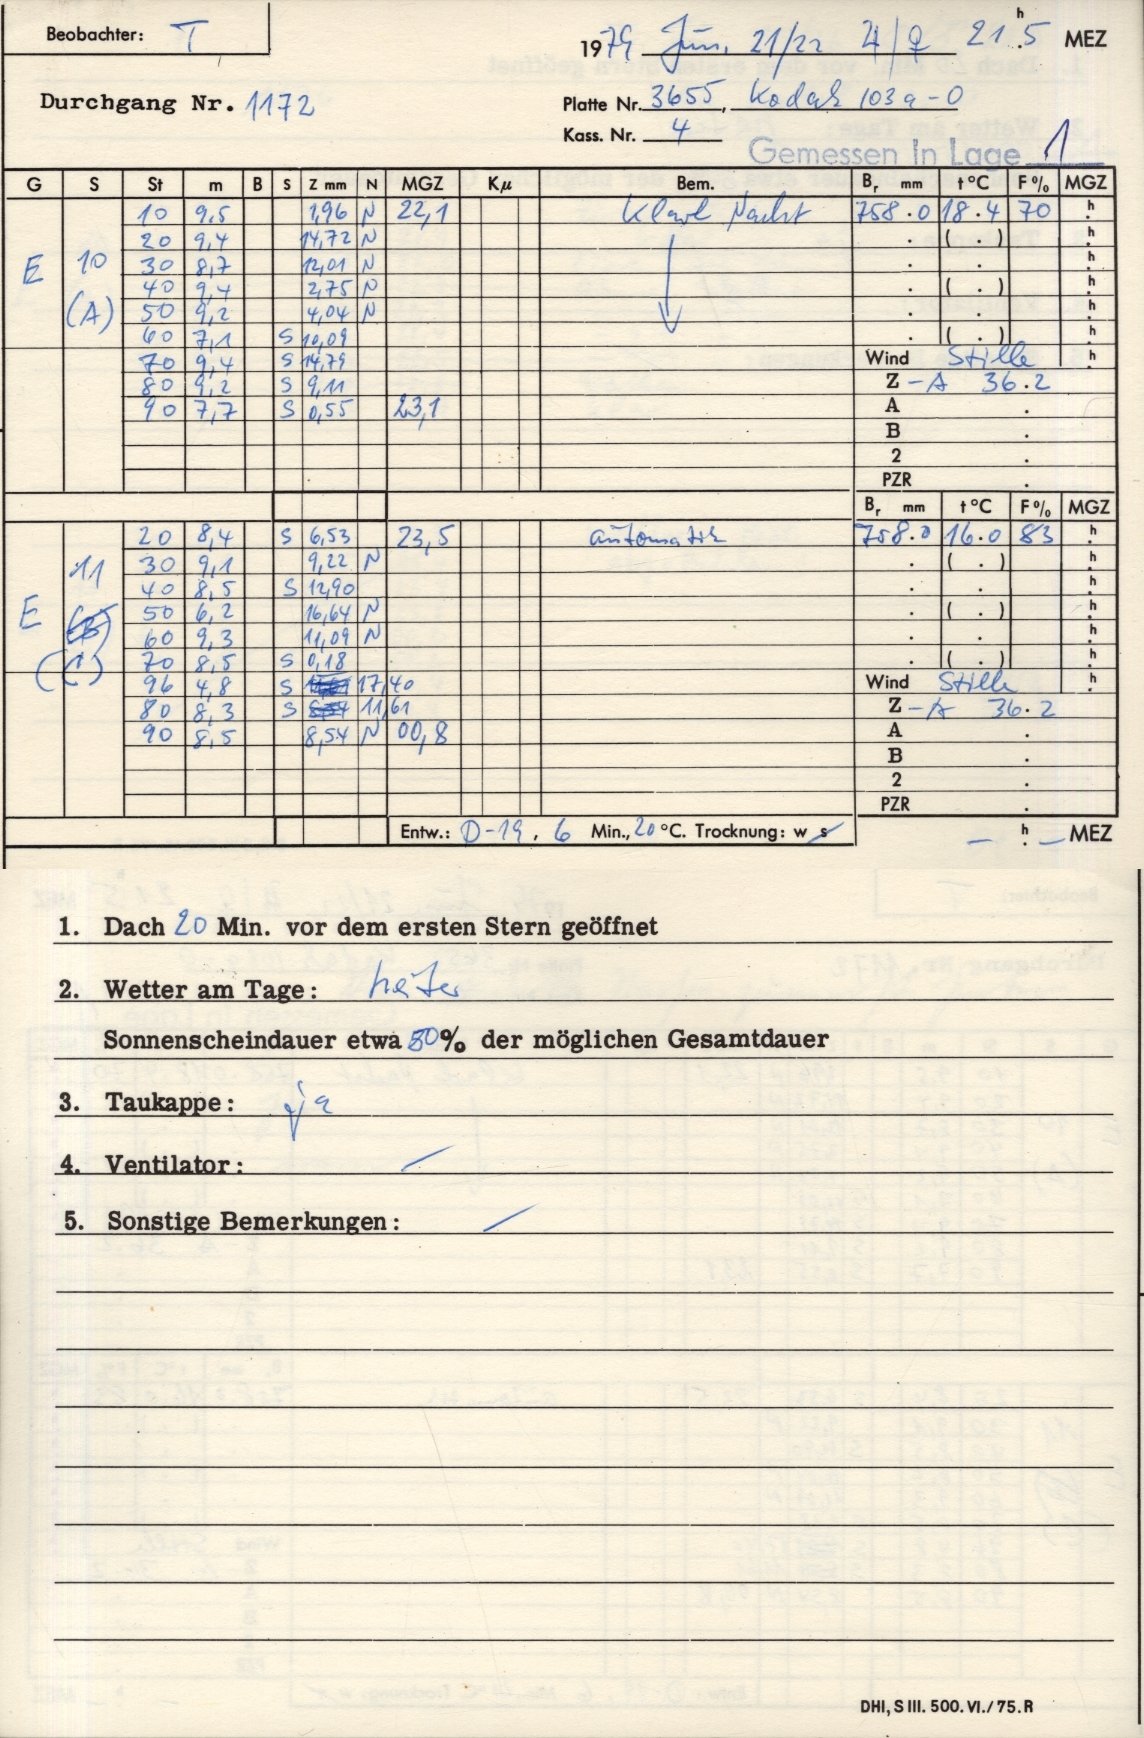 Beobachter: T
1979 Jun. 21/22 ♃/♀ 21h.5 MEZ
Durchgang Nr. 1172
Platte Nr. 3655, Kodak 103a-O
Kass. Nr. 4
Gemessen In Lage 1
G S St m B S Z mm N MGZ Kµ Bem. Br mm t°C F% MGZ
10 9,5 1,96 N 22,1 Klare Nacht 758.0 18.4 70 h.
20 9,4 14,72 N . ( . ) h.
E 10 30 8,7 12,01 N . . h.
40 9,4 2,75 N . ( . ) h.
(A) 50 9,2 4,04 N . . h.
60 7,1 S 10,09 . ( . ) h.
70 9,4 S 14,79 Wind Stille h.
80 9,2 S 9,11 Z -A 36.2
90 7,7 S 0,55 23,1 A .
B .
2 .
PZR .
Br mm t°C F% MGZ
20 8,4 S 6,53 23,5 automatik 758.0 16.0 83 h.
11 30 9,1 9,22 N . ( . ) h.
40 8,5 S 12,90 . . h.
E (B) 50 6,2 16,64 N . ( . ) h.
60 9,3 11,09 N . . h.
(C) 70 8,5 S 0,18 . ( . ) h.
96 4,8 S 17,40 Wind Stille h.
80 8,3 S 11,61 Z -A 36.2
90 8,5 8,54 N 00,8 A .
B .
2 .
PZR .
Entw.: D-19, 6 Min., 20°C. Trocknung: w s — h. — MEZ
1. Dach 20 Min. vor dem ersten Stern geöffnet
2. Wetter am Tage: heiter
Sonnenscheindauer etwa 80% der möglichen Gesamtdauer
3. Taukappe: ja
4. Ventilator: —
5. Sonstige Bemerkungen: —
DHI, S III. 500. VI./75. R